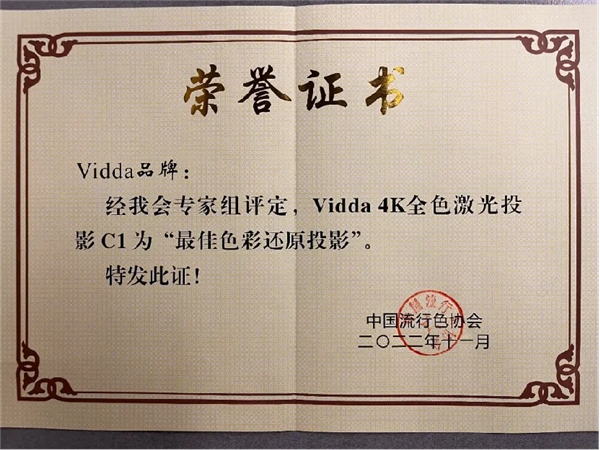 荣誉证书
Vidda品牌：
经我会专家组评定，Vidda 4K全色激光投
影 C1 为“最佳色彩还原投影”。
特发此证！
中国流行色协会
二〇二二年十一月